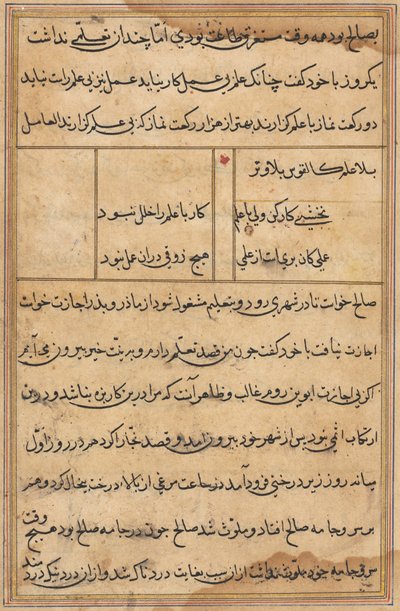 بصالح بود همه وقت مستغرق طاعت بودی اما چندان تعلّمی نداشت
یکروز با خود گفت چنانک علم بی عمل کار نیاید عمل نیز بی علم راست نیاید
دو رکعت نماز با علم گزارند بهتر از هزار رکعت نماز که بی علم گزارند العامل
بلا علم کالقوس بلا وتر
نخشبی کار کن ولی با علم
کار با علم را خلل نبود
علم کان بر
هیچ ذوقی در آن عمل نبود
صالح خواست تا در شهری رود و بتعلیم مشغول شود از مادر و پدر اجازت خواست
اجازت نیافت با خود گفت چون من قصد تعلّم دارم و به نیّت خیر بیرون می آیم
اگر بی اجازت ابوین روم غالب و ظاهر آنست که مرا درین کار بزه نباشد و درین
ارتکاب اثمی نبود پس از شهر خود بیرون آمد و قصد بخارا کرد هم در روز اوّل
میانه روز زیر درختی فرود آمد در ساعت مرغی از بالاء درخت پیخال کرد و هم
بر سر و جامه صالح افتاد و ملوّث شد صالح چون در جامه صالح بود هیچ وقت
سر و جامه خود ملوث نداشت از آن سبب بغایت دردناک شد و از آن درد نیک در درد شد